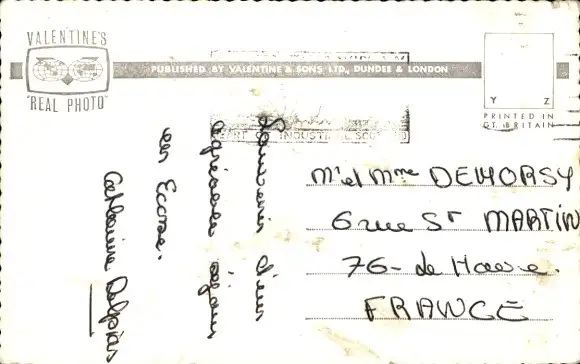 VALENTINE'S
"REAL PHOTO"
PUBLISHED BY VALENTINE & SONS LTD., DUNDEE & LONDON
Y Z
PRINTED IN
GT. BRITAIN
INDUSTRIAL
Souvenir d'un
agréable séjour
en Ecosse.
Catherine
Mr et Mme DEHORSY
6 rue St MARTIN
76- Le Havre.
FRANCE